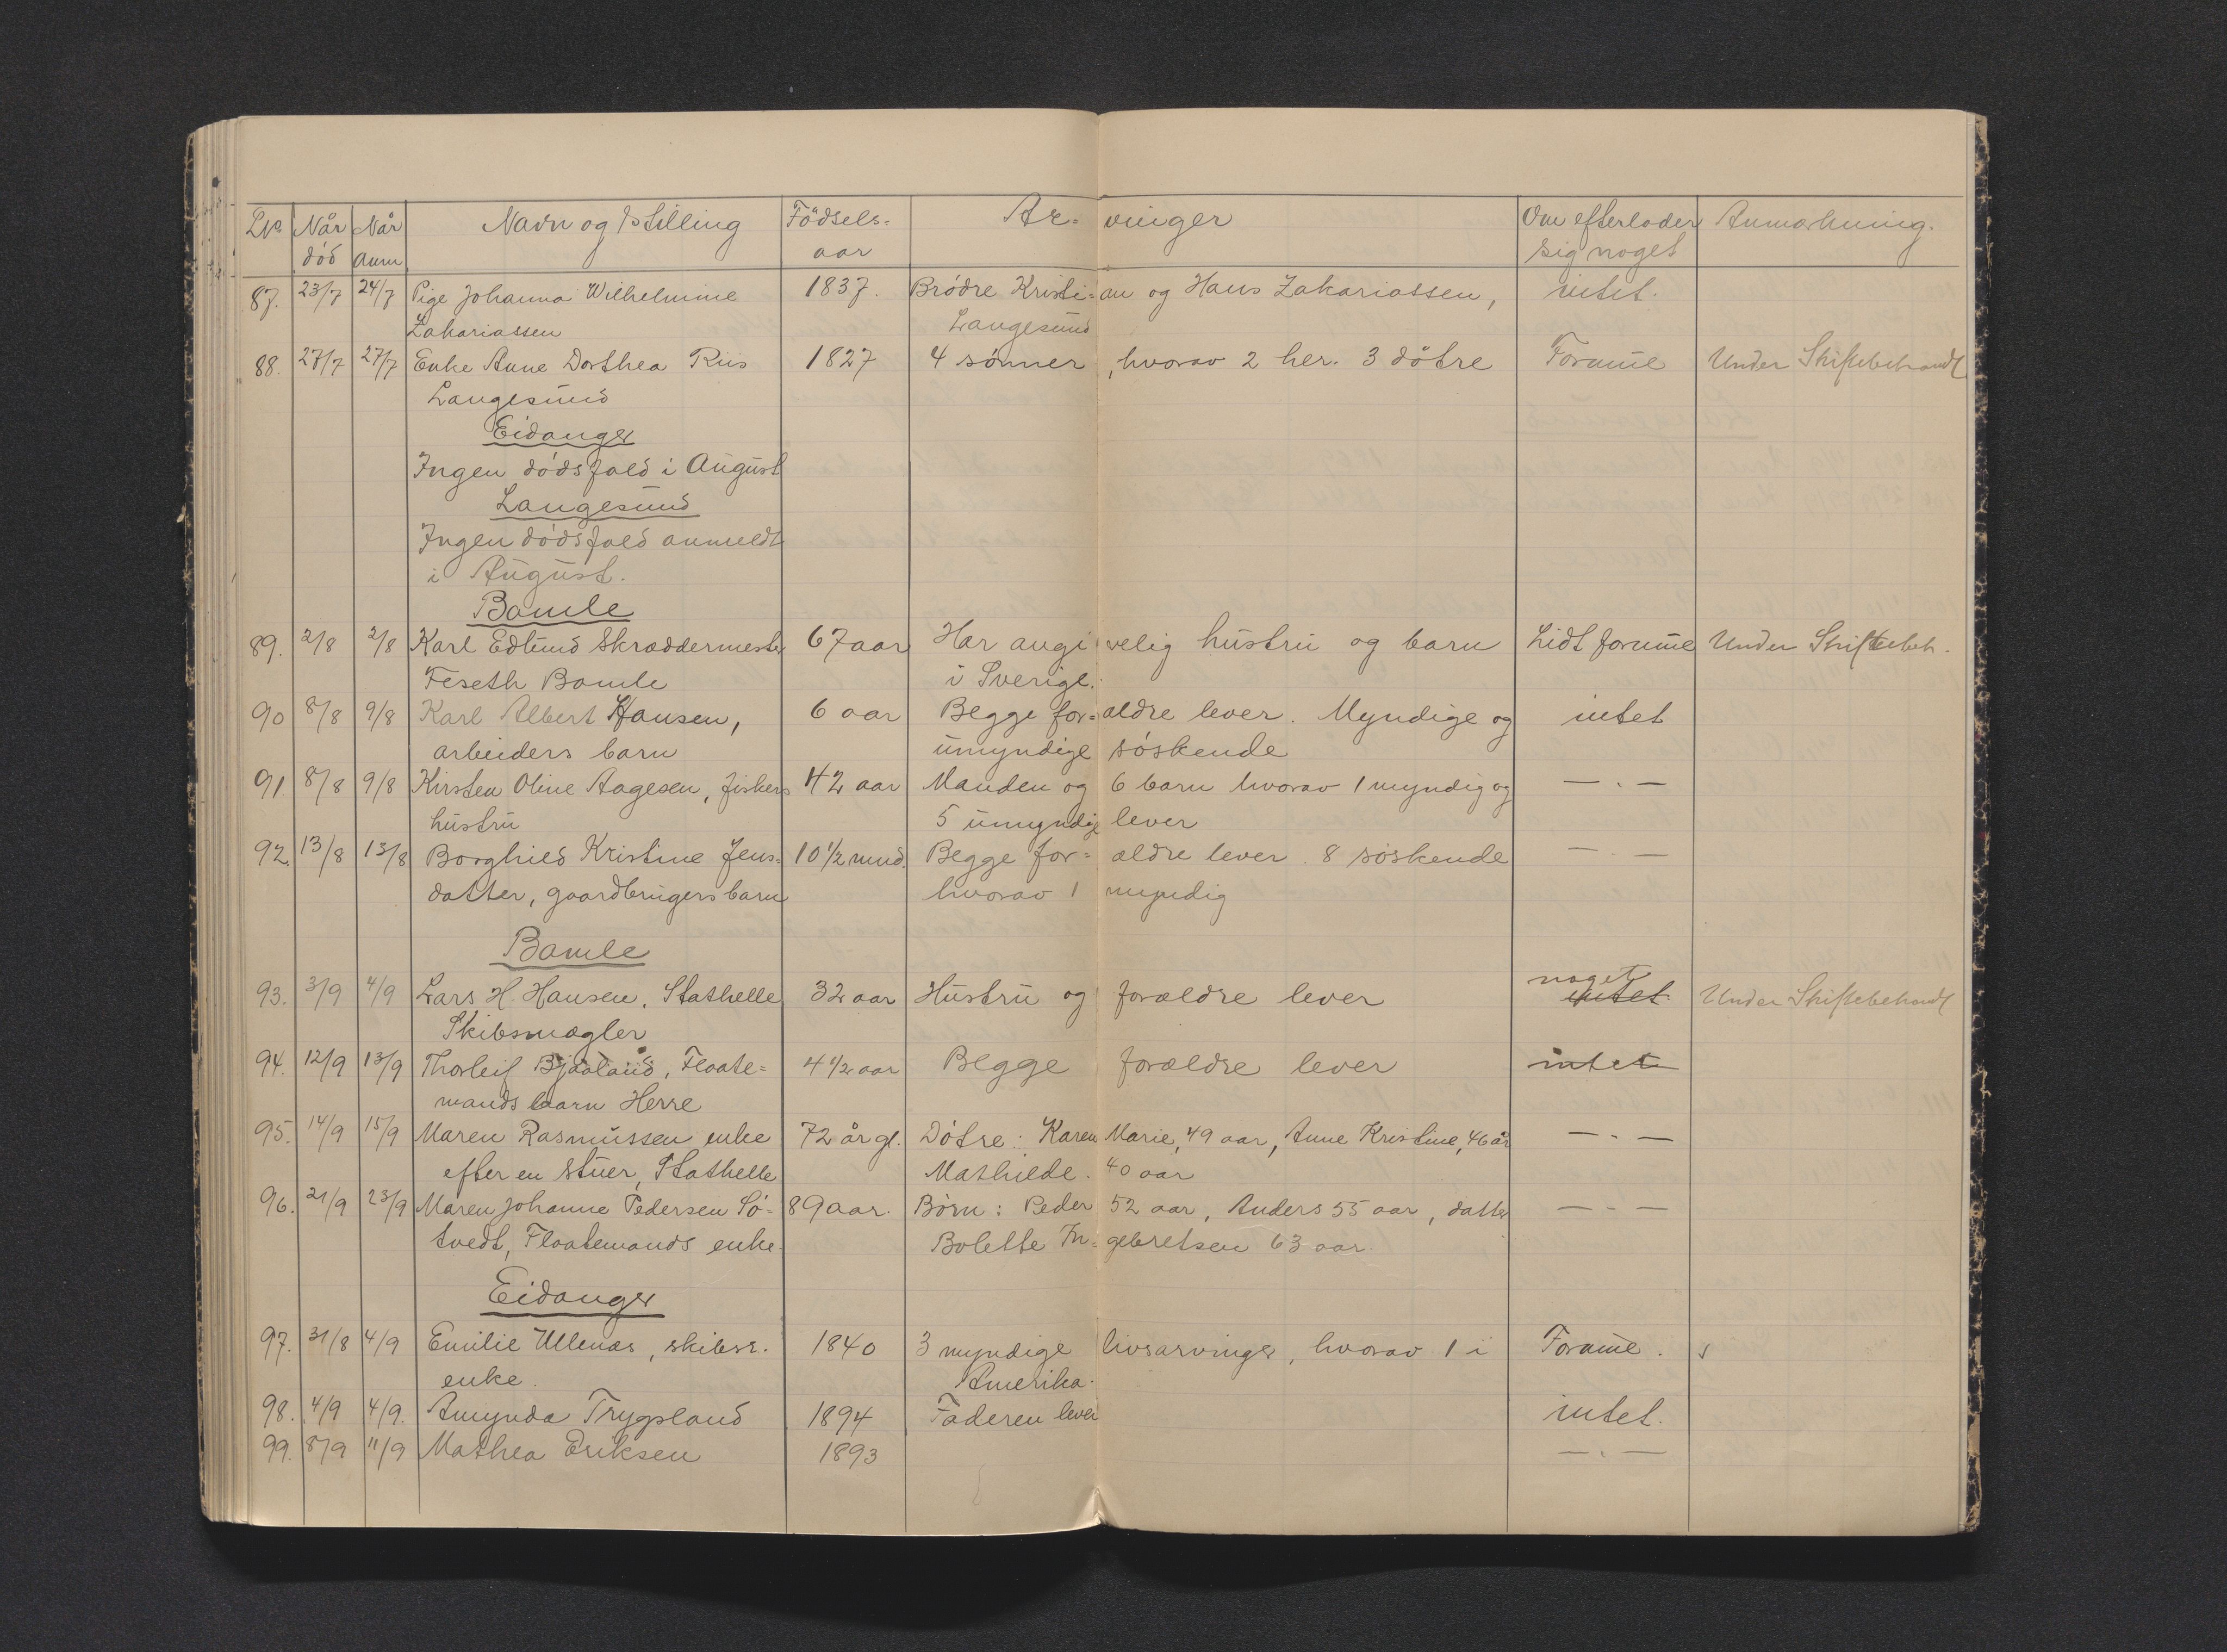 LNo Når død Når Anm Navn og Stilling Födsels= aar Ar= vinger Om efterlader sig noget Anmærkning.
87. 23/7 24/7 Pige Johanna Wilhelmine 1837. Brödre Kristi= an og Hans Zakariassen, intet.
Zakariassen Langesund
88. 27/7 27/7 Enke Anne Dorthea Riis 1827 4 sönner, hvorav 2 her. 3 dötre Formue Under Skiftebehandl
Langesund
Eidanger
Ingen dödsfald i August
Langesund
Ingen dödsfald anmeldt
i August.
Bamle
89. 2/8 2/8 Karl Edlund Skræddermester 67 aar Har angi velig hustru og barn Lidt formue Under Skiftebeh.
Feseth Bamle i Sverige.
90 8/8 9/8 Karl Albert Hansen, 6 aar Begge for= ældre lever. Myndige og intet
arbeiders barn umyndige söskende
91 8/8 9/8 Kirsten Oline Aagesen, fiskers 42 aar Manden og 6 barn hvorav 1 myndig og — . —
hustru 5 umyndige lever
92. 13/8 13/8 Borghild Kristine Jens= 10 1/2 mnd. Begge for= ældre lever. 8 söskende — . —
datter, gaardbrugers barn hvorav 1 myndig
Bamle
93. 3/9 4/9 Lars H. Hansen, Stathelle 32 aar Hustru og forældre lever noget intet. Under Skiftebehandl
Skibsmægler
94. 12/9 13/9 Thorleif Bjaaland, Flaate= 4 1/2 aar Begge forældre lever intet
mands barn Herre
95. 14/9 15/9 Maren Rasmussen enke 72 år gl. Dötre: Karen Marie, 49 aar, Anne Kristine, 46 år — . —
efter en stuer, Stathelle Mathilde. 40 aar
96. 21/9 23/9 Maren Johanne Pedersen Sö= 89 aar. Börn: Peder 52 aar, Anders 55 aar, datter — . —
tvedt, Flaatemands enke. Bolette In= gebretsen 63 aar.
Eidanger
97. 31/8 4/9 Emilie Ullenæs, skibsr. 1840 3 myndige livsarvinger, hvorav 1 i Formue. s
enke. Amerika.
98. 4/9 4/9. Amynda Trygsland 1894 Faderen lever intet.
99. 8/9 11/9 Mathea Eriksen 1893 — . —